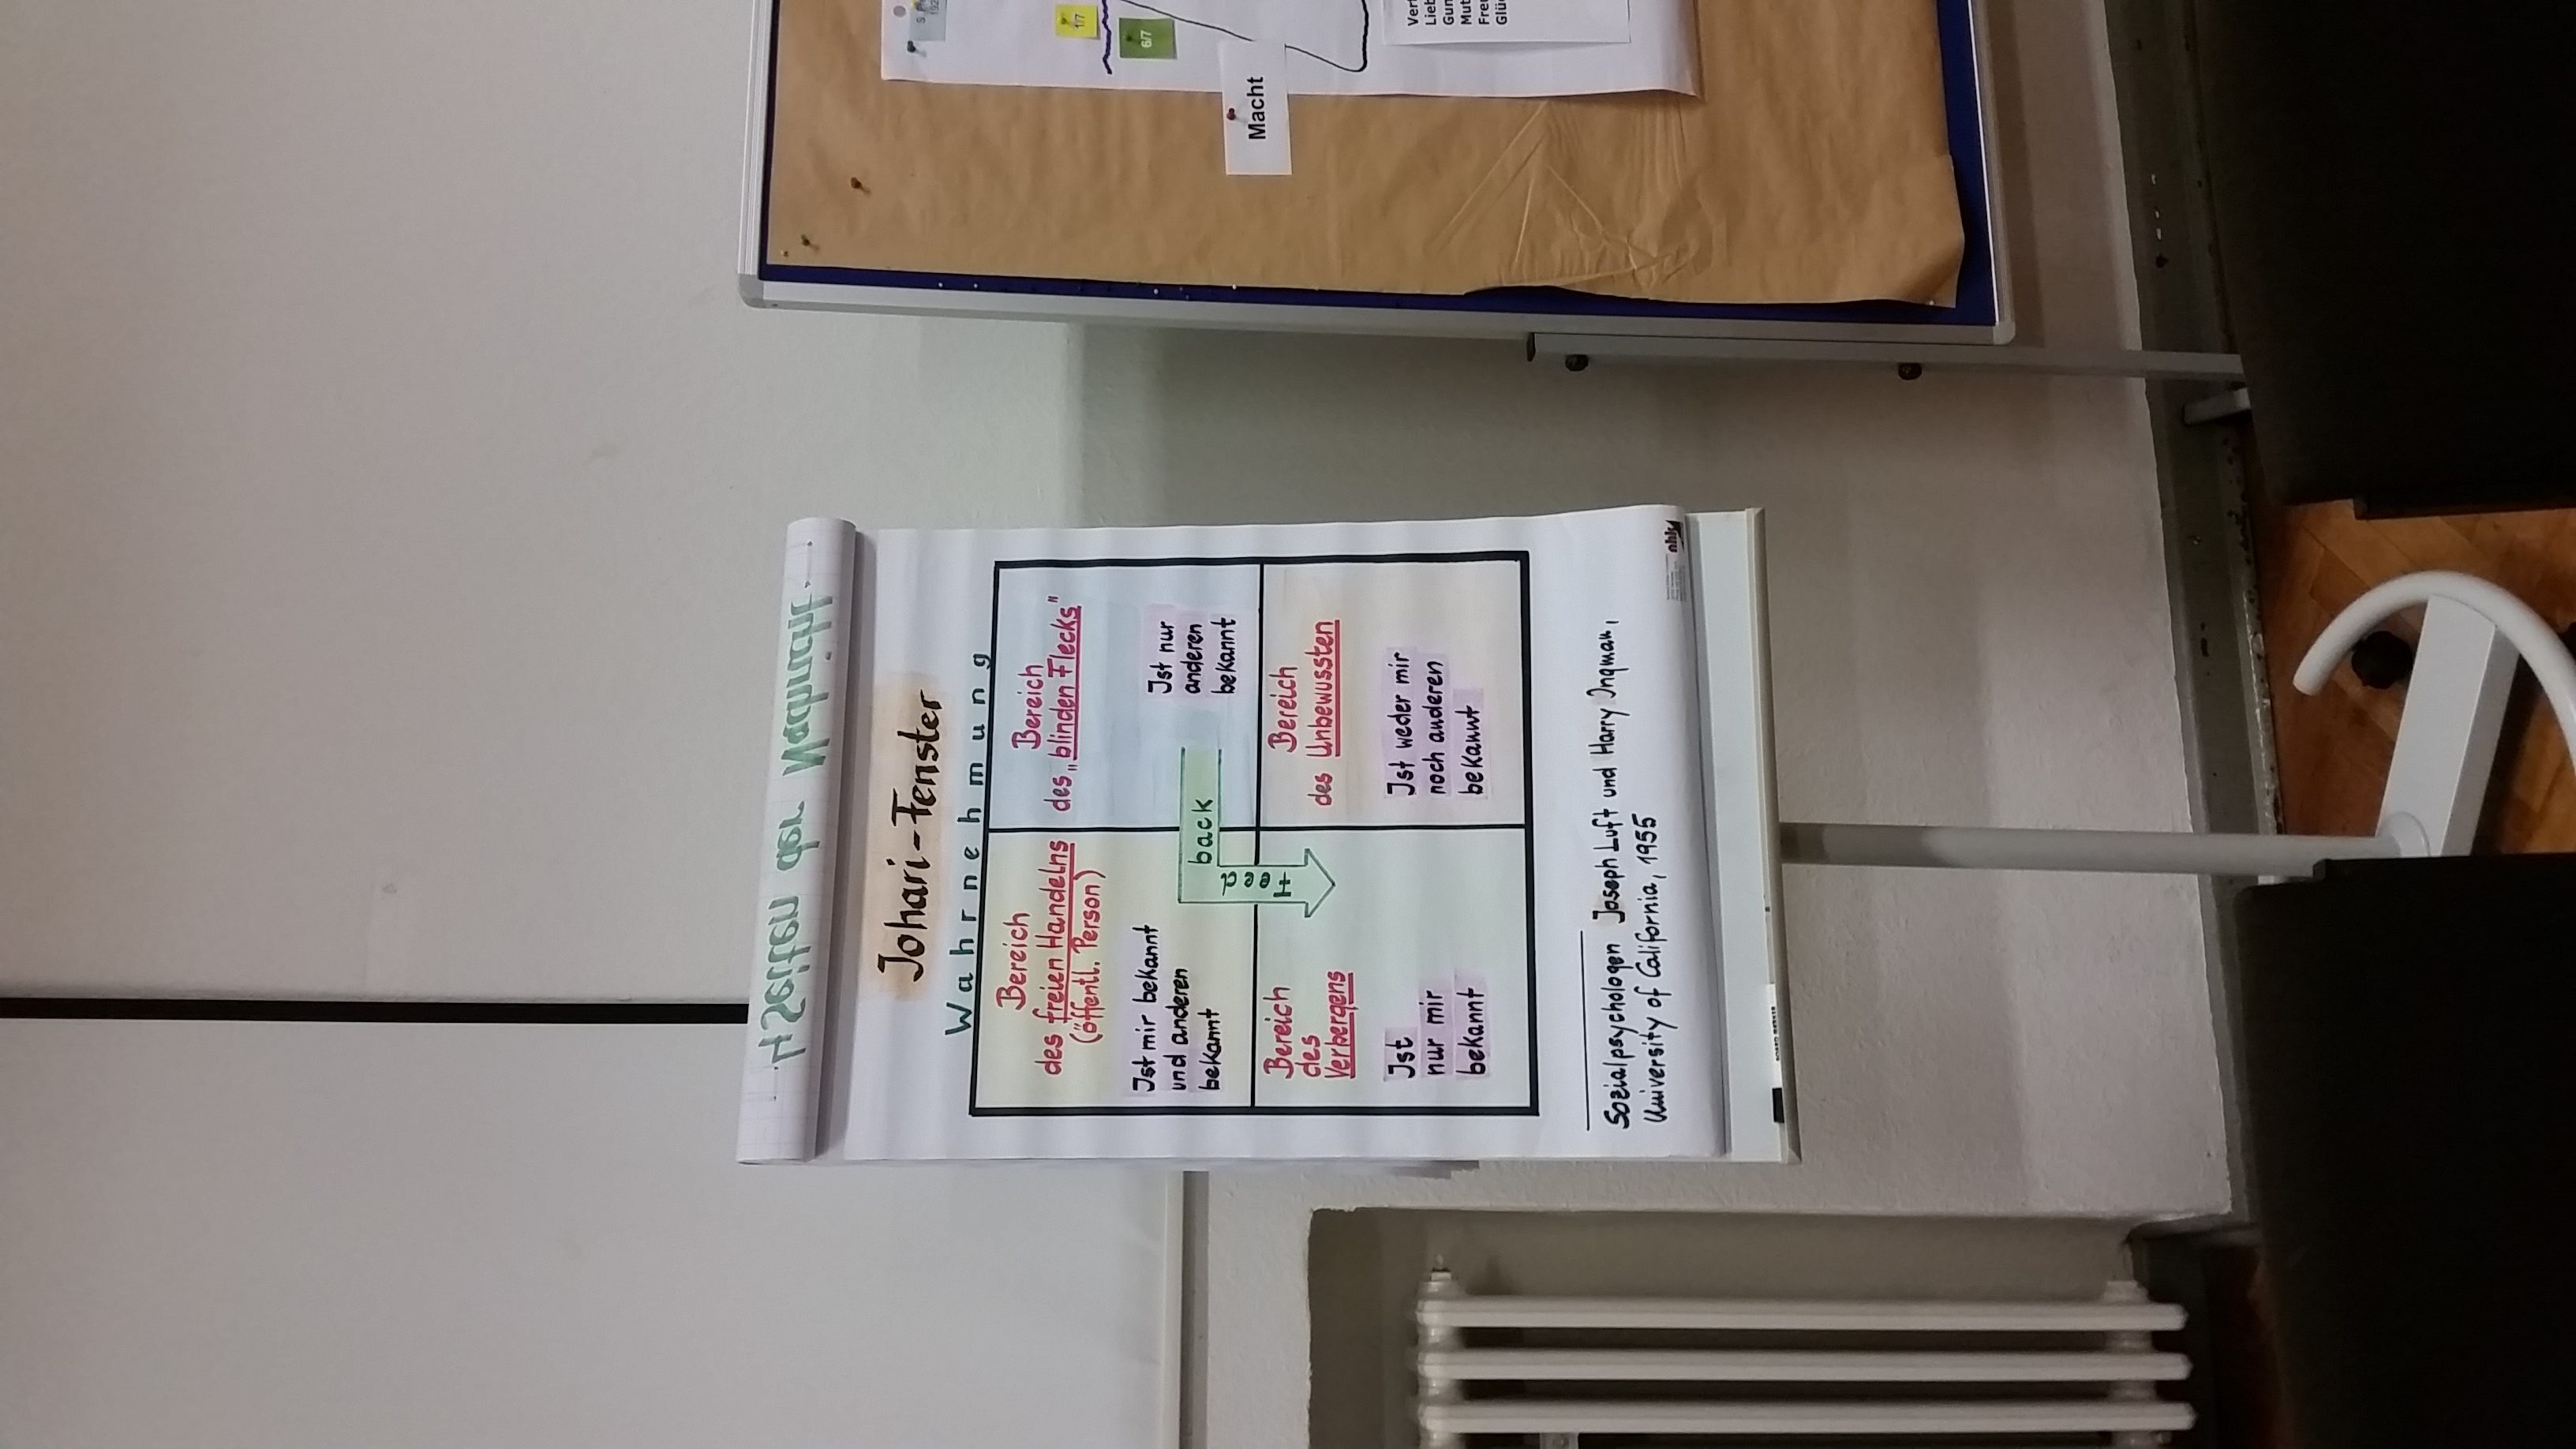 4 Seiten der Nachricht
Johari-Fenster
Wahrnehmung
Bereich
des freien Handelns
(öffentl. Person)
Ist mir bekannt
und anderen
bekannt
Bereich
des „blinden Flecks"
Ist nur
anderen
bekannt
Feed
back
Bereich
des
Verbergens
Ist
nur mir
bekannt
Bereich
des Unbewussten
Ist weder mir
noch anderen
bekannt
Sozialpsychologen Joseph Luft und Harry Ingman,
University of California, 1955
nhk
BOARD MARKER
1/7
6/7
Macht